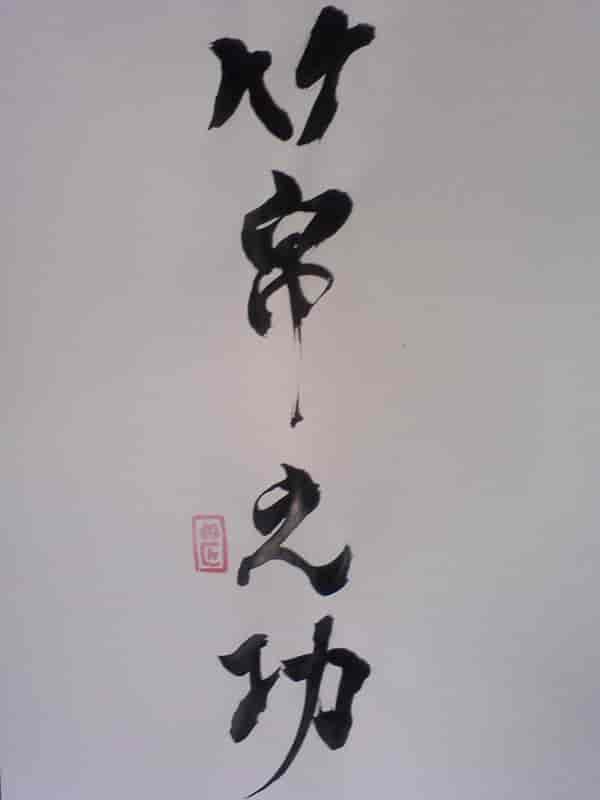 竹帛之功